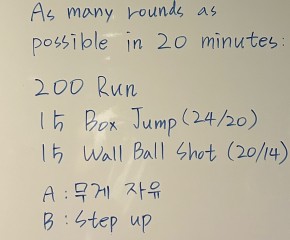 As many rounds as
possible in 20 minutes:
200 Run
15 Box Jump (24/20)
15 Wall Ball Shot (20/14)
A : 무게 자유
B : Step up